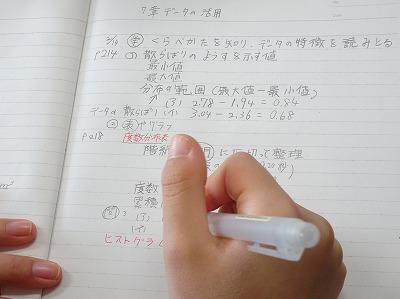 7章 データの活用
2/19 くらべかたを知り、データの特徴を読みとる
P214 ① 散らばりのようすを示す値
最小値
最大値
分布の範囲 (最大値ー最小値)
(ア) 2.78 - 1.94 = 0.84
データの散らばり (イ) 3.04 - 2.36 = 0.68
② 表やグラフ
P218 度数分布表
階級 に区切って整理
度数
累積
問3 (ア)
(イ)
ヒストグラム